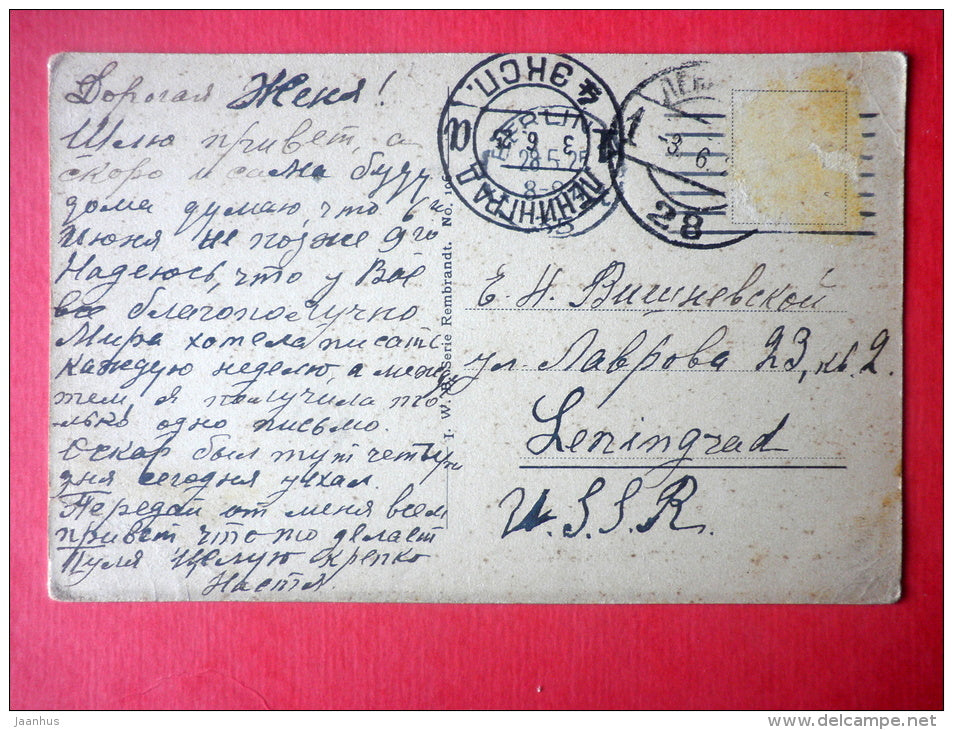 Дорогая Женя!
Шлю привет, а
скоро и сама буду
дома думаю, что 6го
Июня не позже 9го
Надеюсь, что у Вас
все благополучно
Мира хотела писать
каждую неделю, а между
тем, я получила то
лько одно письмо.
Оскар был тут четыре
дня сегодня уехал.
Передай от меня всем
привет что то делает
Пуля Целую крепко
Настя.
I. W. B. Serie Rembrandt. No.
ЛЕНИНГРАД
4 ЭКСП.
10
BERLIN
28.5.25
8-9
3 6
ЛЕН
1
-3.6.
28
Е. Н. Вишневской
ул. Лаврова 23, кв. 2.
Leningrad
U.S.S.R.
Jaanhus
www.delcampe.net